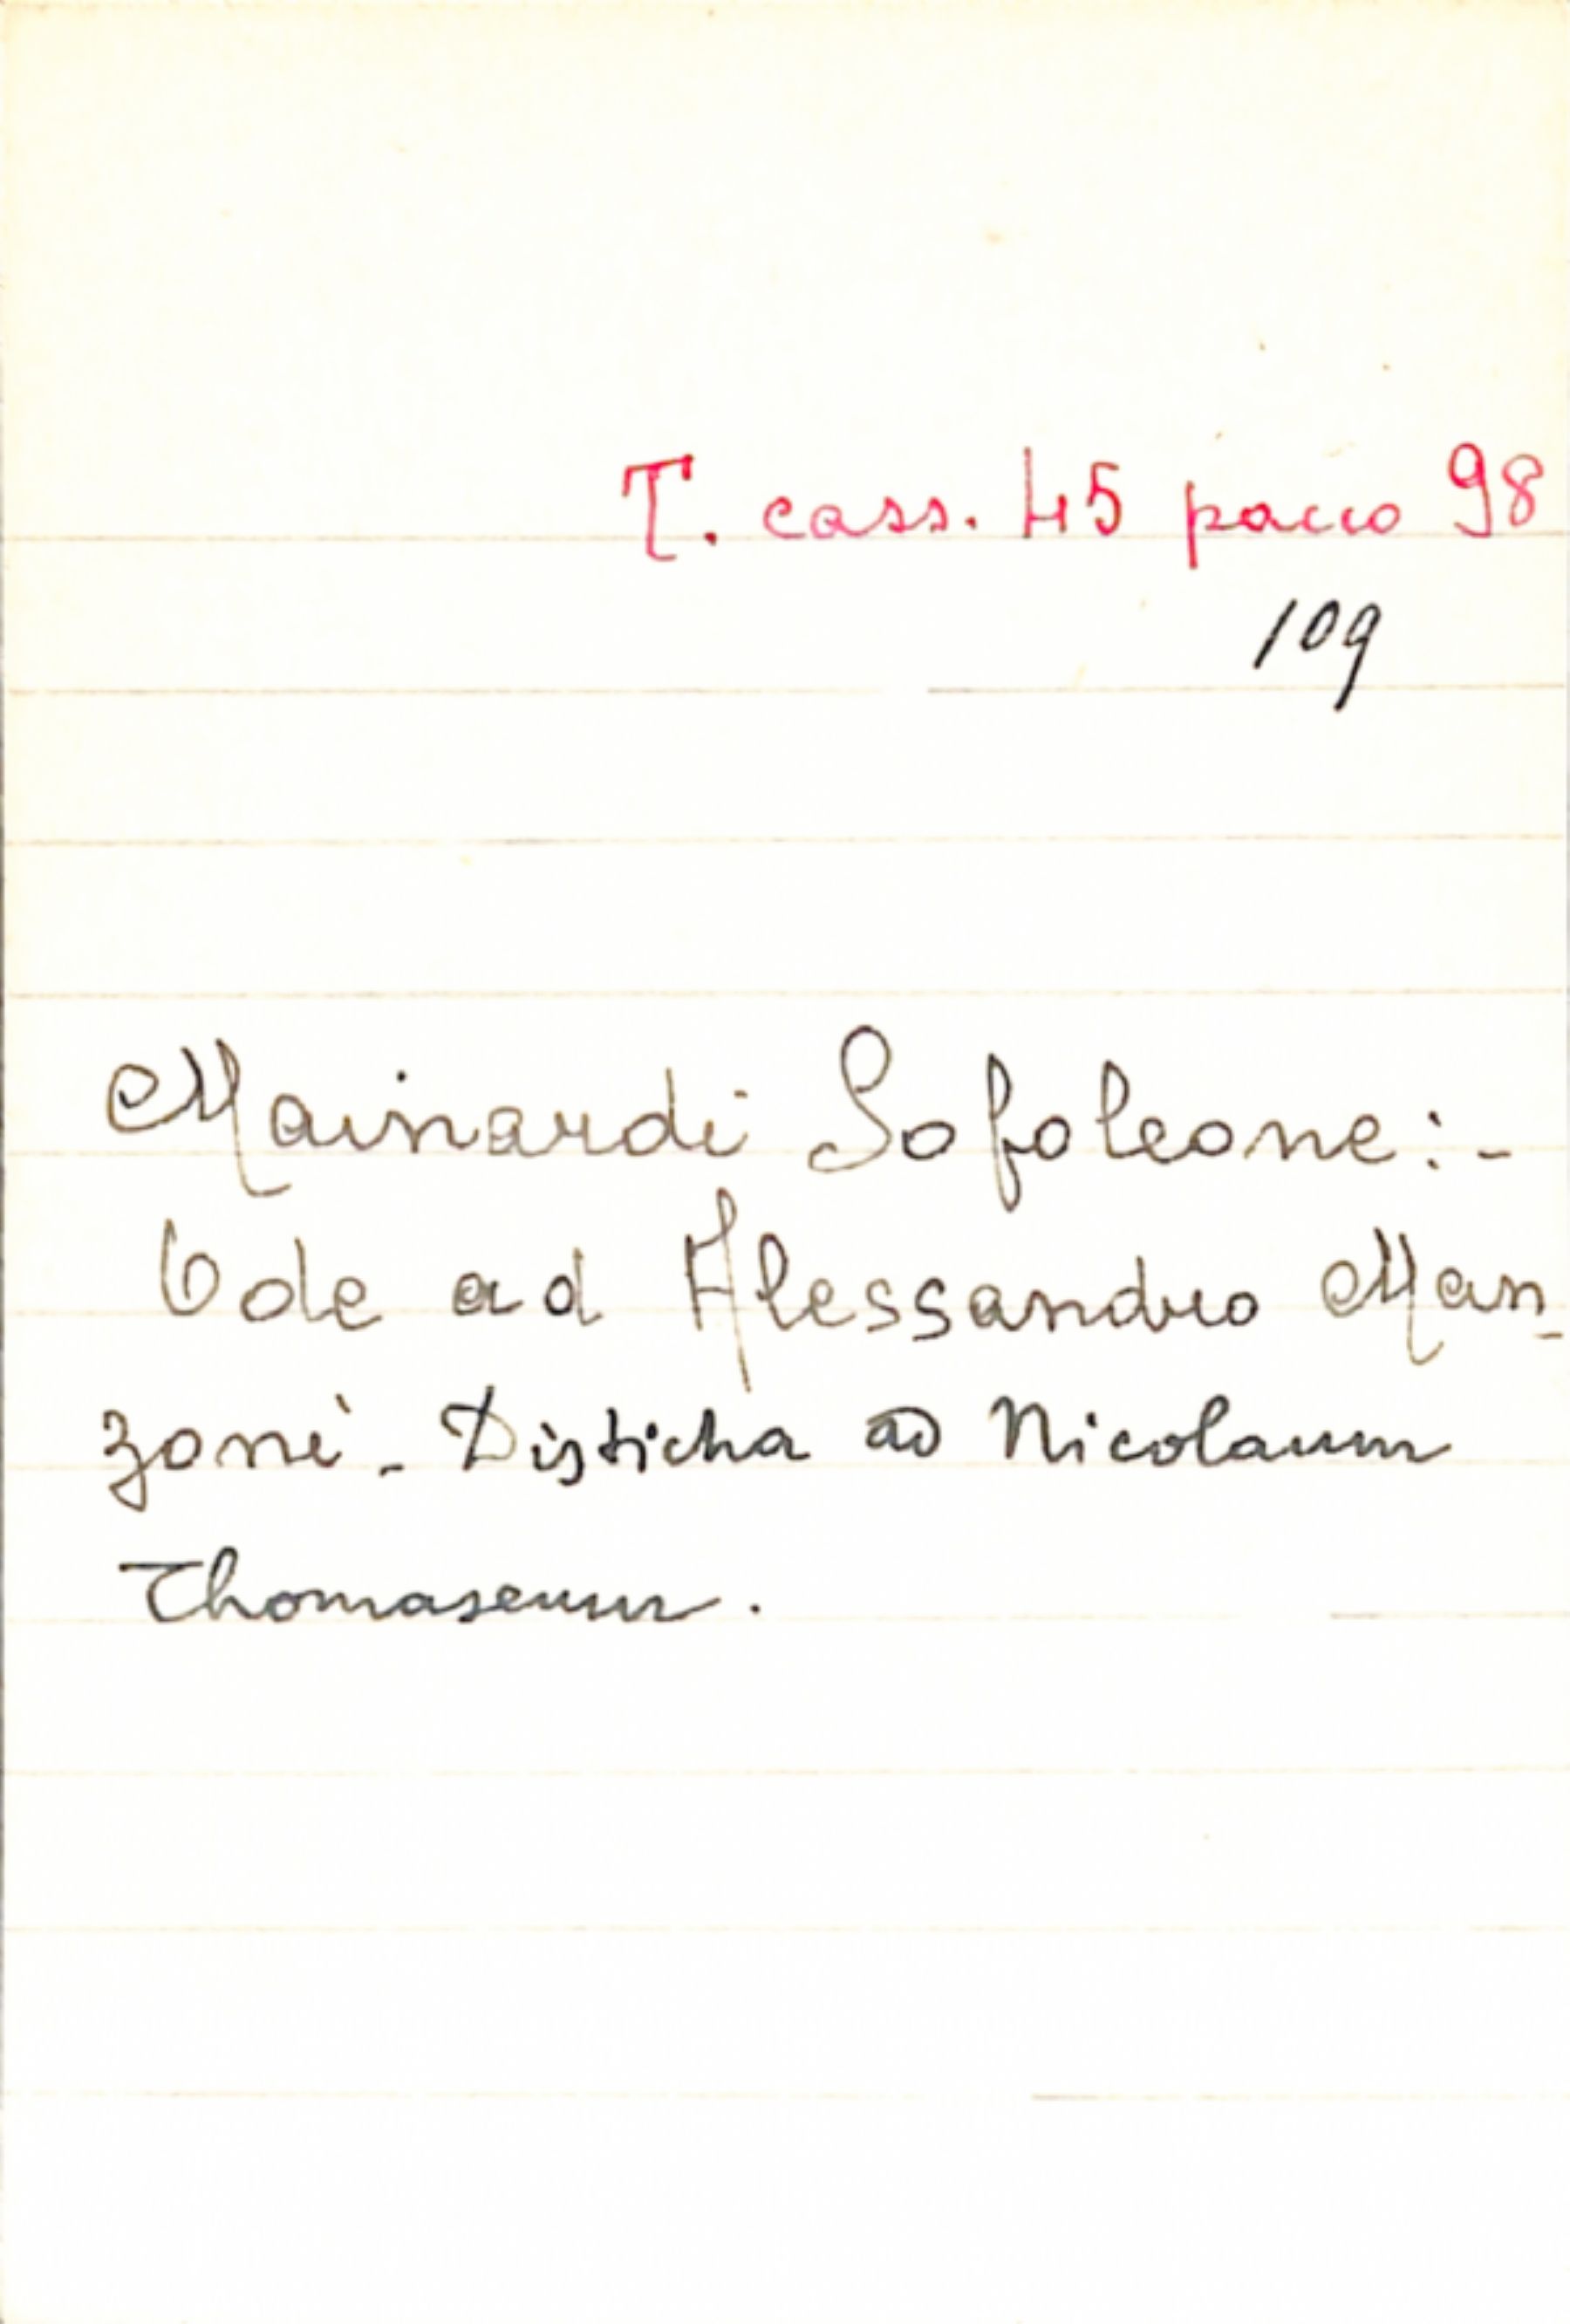 T. cass. 45 pacco 98
109
Mainardi Sofoleone:-
Ode ad Alessandro Man-
zoni - Disticha ad Nicolaum
Thomaseum.